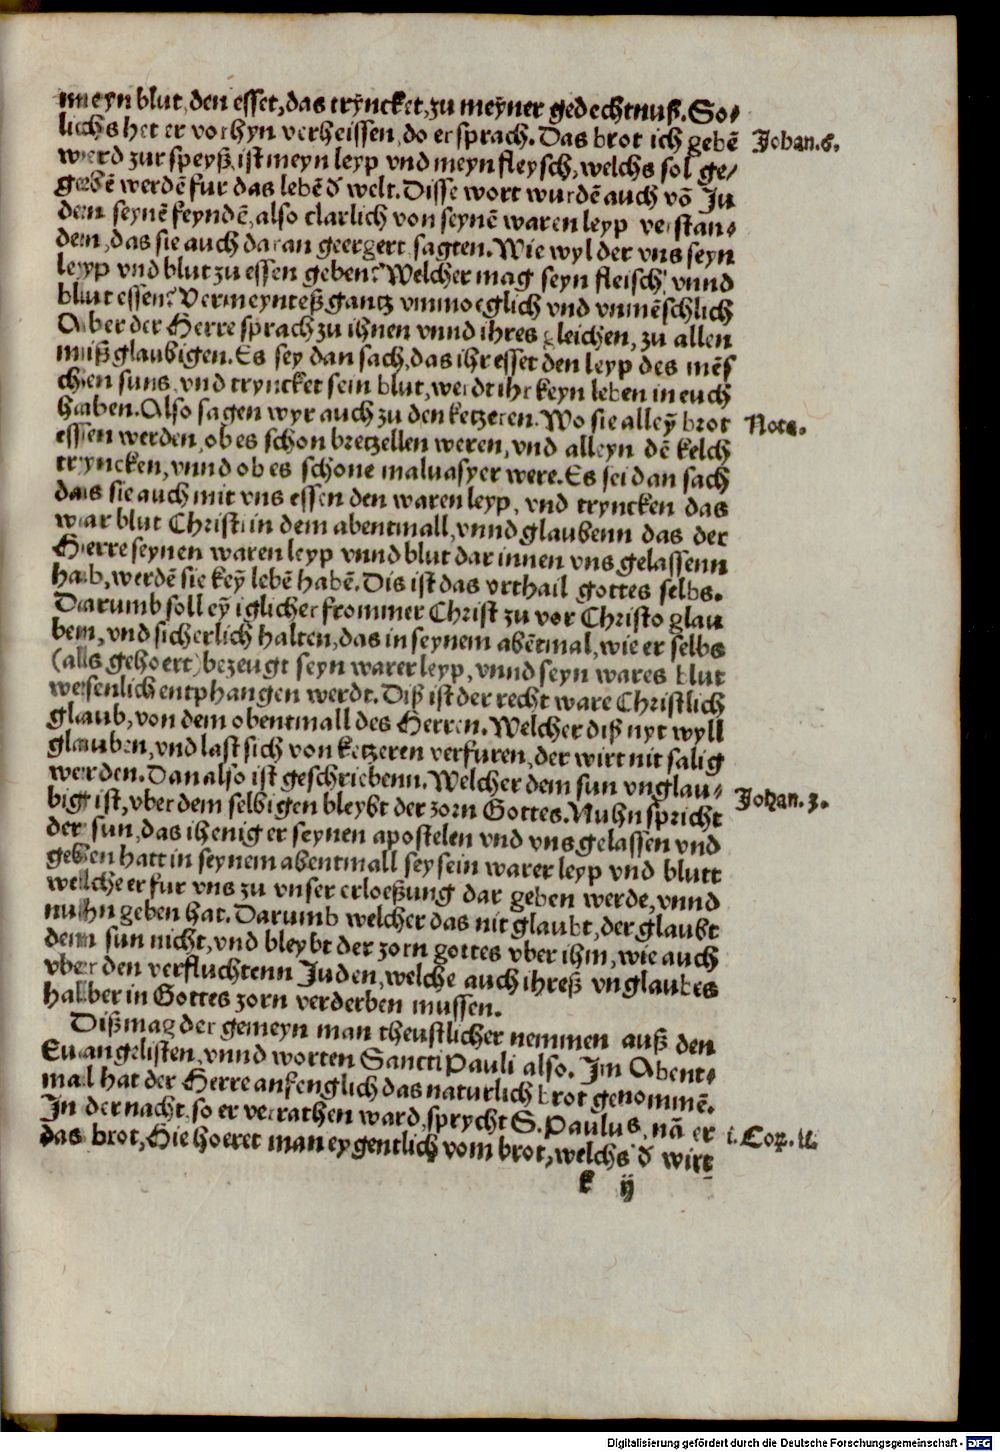 meyn blut, den esset, das trÿncket, zu meÿner gedechtnuß. So⸗
lichs het er vorhyn verheissen, do er sprach. Das brot ich gebẽ
werd zur speyß, ist meyn leyp vnd meyn fleysch, welchs sol ge⸗
gebẽ werdẽ fur das lebẽ d̕ welt. Disse wort wurdẽ auch võ Ju
den seynẽ feyndẽ, also clarlich von seynẽ waren leyp verstan⸗
den, das sie auch daran geergert sagten. Wie wyl der vns seyn
leyp vnd blut zu essen geben? Welcher mag seyn fleisch vnnd
blut essen? Vermeynteß gantz vnmoeglich vnd vnmẽschlich
Aber der Herre sprach zu ihnen vnnd ihres gleichen, zu allen
mißglaubigen. Es sey dan sach, das ihr esset den leyp des mẽs
chen suns, vnd tryncket sein blut, werdt ihr keyn leben in euch
haben. Also sagen wyr auch zu den ketzeren. Wo sie alleÿ brot
essen werden, ob es schon bretzellen weren, vnd alleyn dẽ kelch
tryncken, vnnd ob es schone maluasyer were. Es sei dan sach
das sie auch mit vns essen den waren leyp, vnd tryncken das
war blut Christi in dem abentmall, vnnd glaubenn das der
Herre seynen waren leyp vnnd blut dar innen vns gelassenn
hab, werdẽ sie keÿ lebẽ habẽ. Dis ist das vrthail gottes selbs.
Darumb soll eÿ iglicher frommer Christ zu vor Christo glau
ben, vnd sicherlich halten, das in seynem abẽtmal, wie er selbs
(als gehoert) bezeugt seyn warer leyp, vnnd seyn wares blut
wesenlich entphangen werdt. Diß ist der recht ware Christlich
glaub, von dem obentmall des Herren. Welcher diß nyt wyll
glauben, vnd last sich von ketzeren verfuren, der wirt nit salig
werden. Dan also ist geschriebenn. Welcher dem sun vnglau⸗
big ist, vber dem selbigen bleybt der zorn Gottes. Nuhn spricht
der sun, das ihenig er seynen apostelen vnd vns gelassen vnd
geben hatt in seynem abentmall sey sein warer leyp vnd blutt
welche er fur vns zu vnser erloeßung dar geben werde, vnnd
nuhn geben hat. Darumb welcher das nit glaubt, der glaubt
dem sun nicht, vnd bleybt der zorn gottes vber ihm, wie auch
vber den verfluchtenn Juden, welche auch ihreß vnglaubes
halber in Gottes zorn verderben mussen.
Diß mag der gemeyn man theustlicher nemmen auß den
Euangelisten, vnnd worten Sancti Pauli also. Im Abent⸗
mal hat der Herre anfenglich das naturlich brot genommẽ.
In der nacht, so er verrathen ward, sprycht S. Paulus, nã er
das brot, Hie hoeret man eygentlich vom brot, welchs d̕ wirt
k ij
Johan.6.
Nota.
Johan.3.
i.Cor.11.
Digitalisierung gefördert durch die Deutsche Forschungsgemeinschaft - DFG